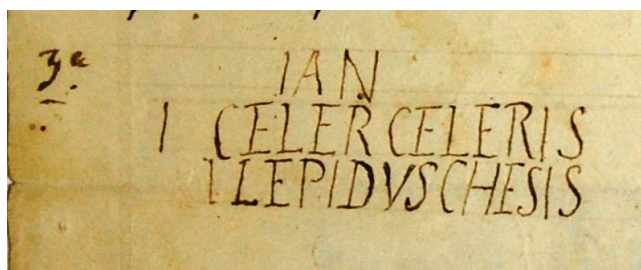 3ª
IAN
I CELER CELERIS
I LEPIDVS CHESIS